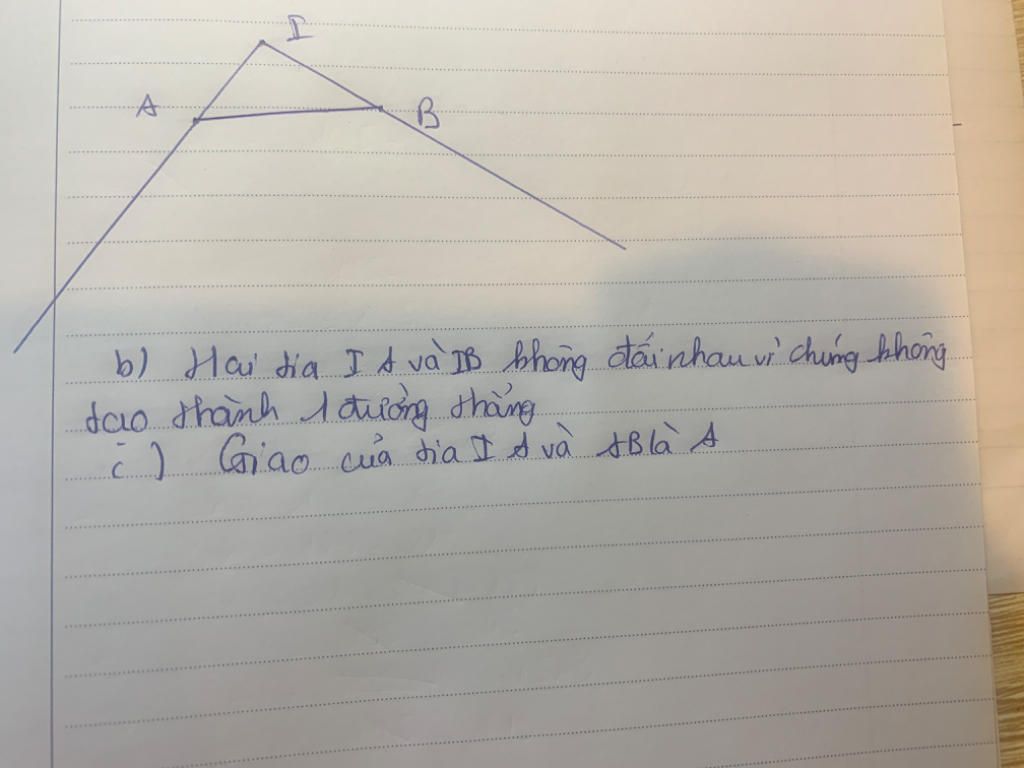 I
A
B
b) Hai tia IA và IB không đối nhau vì chúng không
tạo thành 1 đường thẳng
c) Giao của tia IA và AB là A